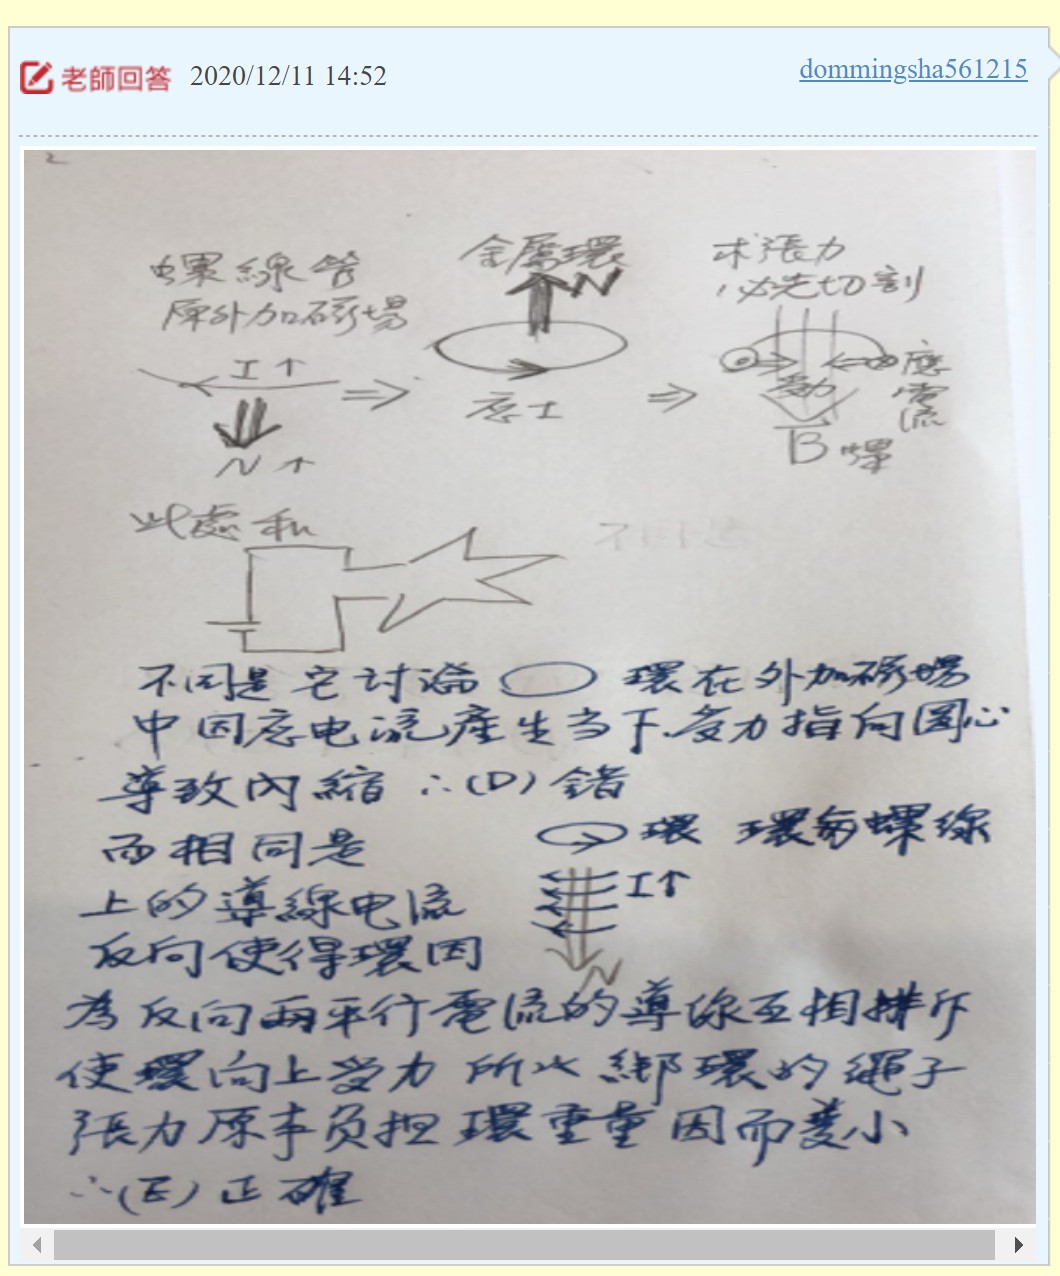 老師回答 2020/12/11 14:52
dommingsha561215
螺線管
原外加磁場
I↑
N↑
金屬環
N
应士
求張力
必先切割
應
電
流
受力
B 螺
此處和
不同是它討論 環在外加磁場
中因应电流產生当下受力指向圓心
導致內縮 ∴(D)錯
而相同是
環 環與螺線
上的導線电流
I↑
反向使得環因
N
為反向兩平行電流的導線互相排斥
使環向上受力 所以綁環的繩子
張力原本负担環重量因而變小
∴(E)正確